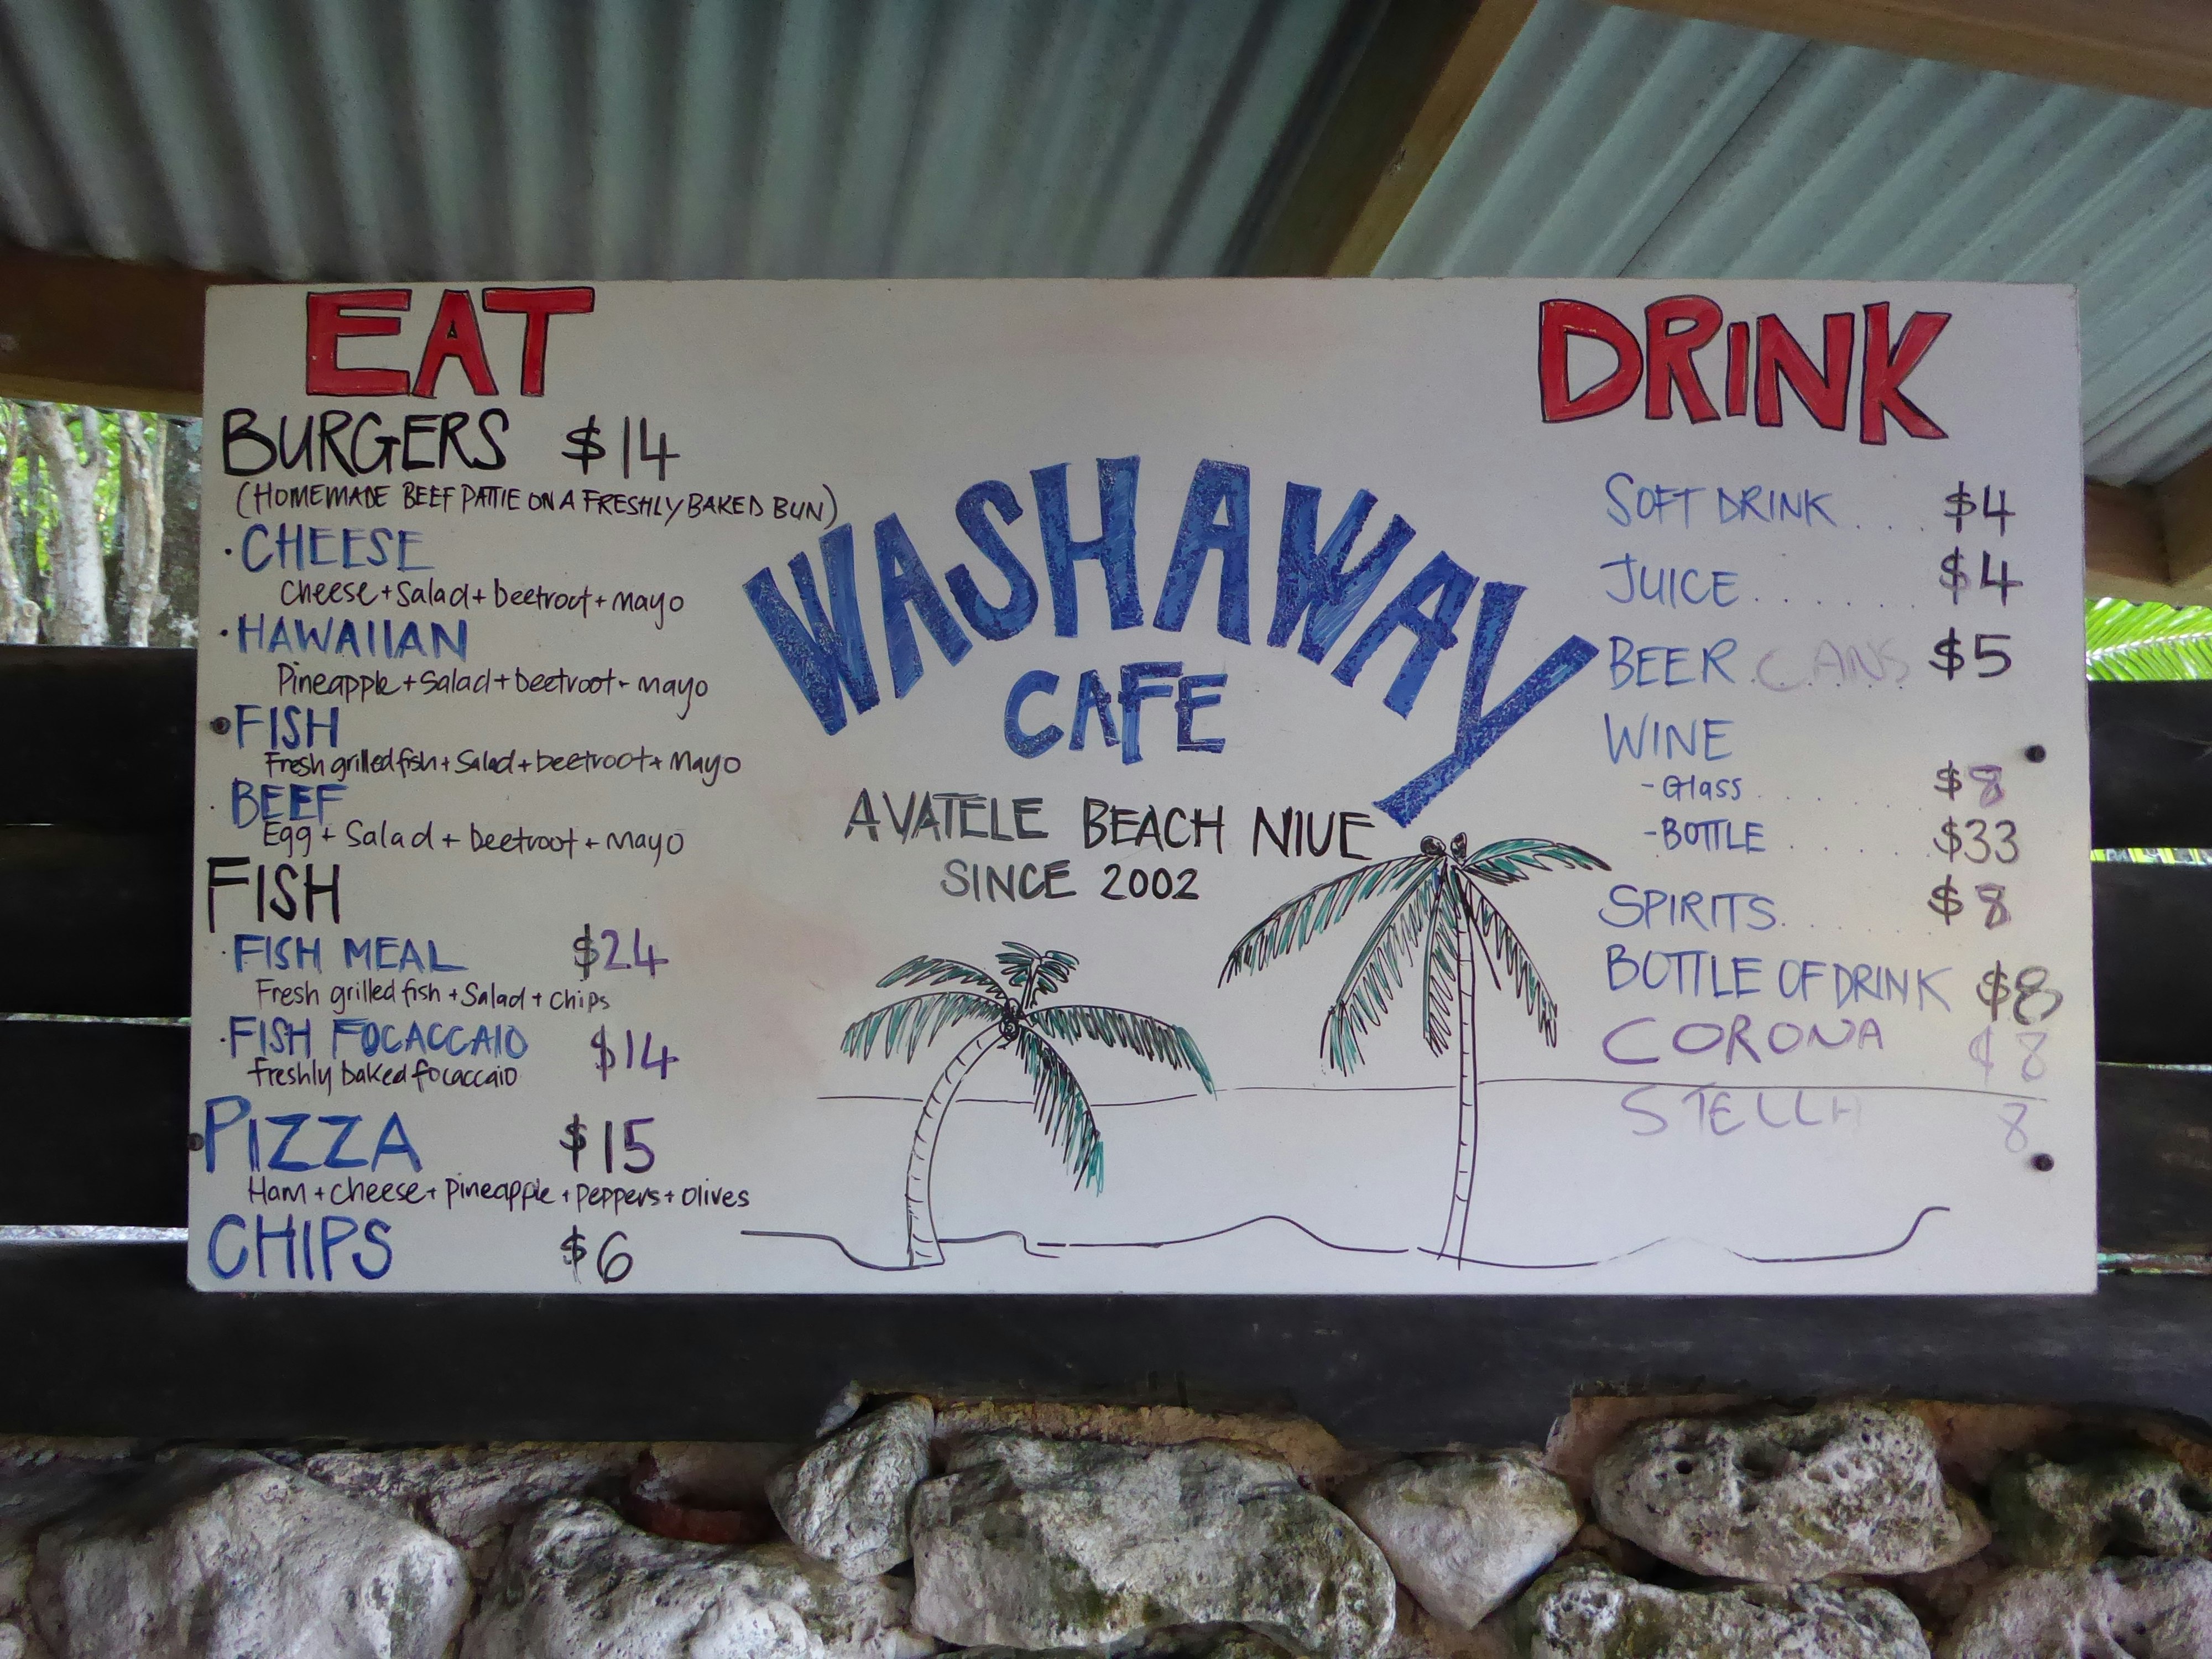 EAT
BURGERS $14
(HOMEMADE BEEF PATTIE ON A FRESHLY BAKED BUN)
·CHEESE
Cheese+Salad+beetroot+mayo
·HAWAIIAN
Pineapple+salad+beetroot+mayo
·FISH
Fresh grilled fish+Salad+beetroot+Mayo
·BEEF
Egg+Salad+beetroot+mayo
FISH
·FISH MEAL $24
Fresh grilled fish+Salad+Chips
·FISH FOCACCAIO $14
Freshly baked focaccaio
PIZZA $15
Ham+cheese+pineapple+peppers+olives
CHIPS $6
WASHAWAY
CAFE
AVATELE BEACH NIUE
SINCE 2002
DRINK
SOFT DRINK.... $4
JUICE....... $4
BEER CANS $5
WINE
-Glass...... $8
-BOTTLE...... $33
SPIRITS...... $8
BOTTLE OF DRINK $8
CORONA $8
STELLA 8